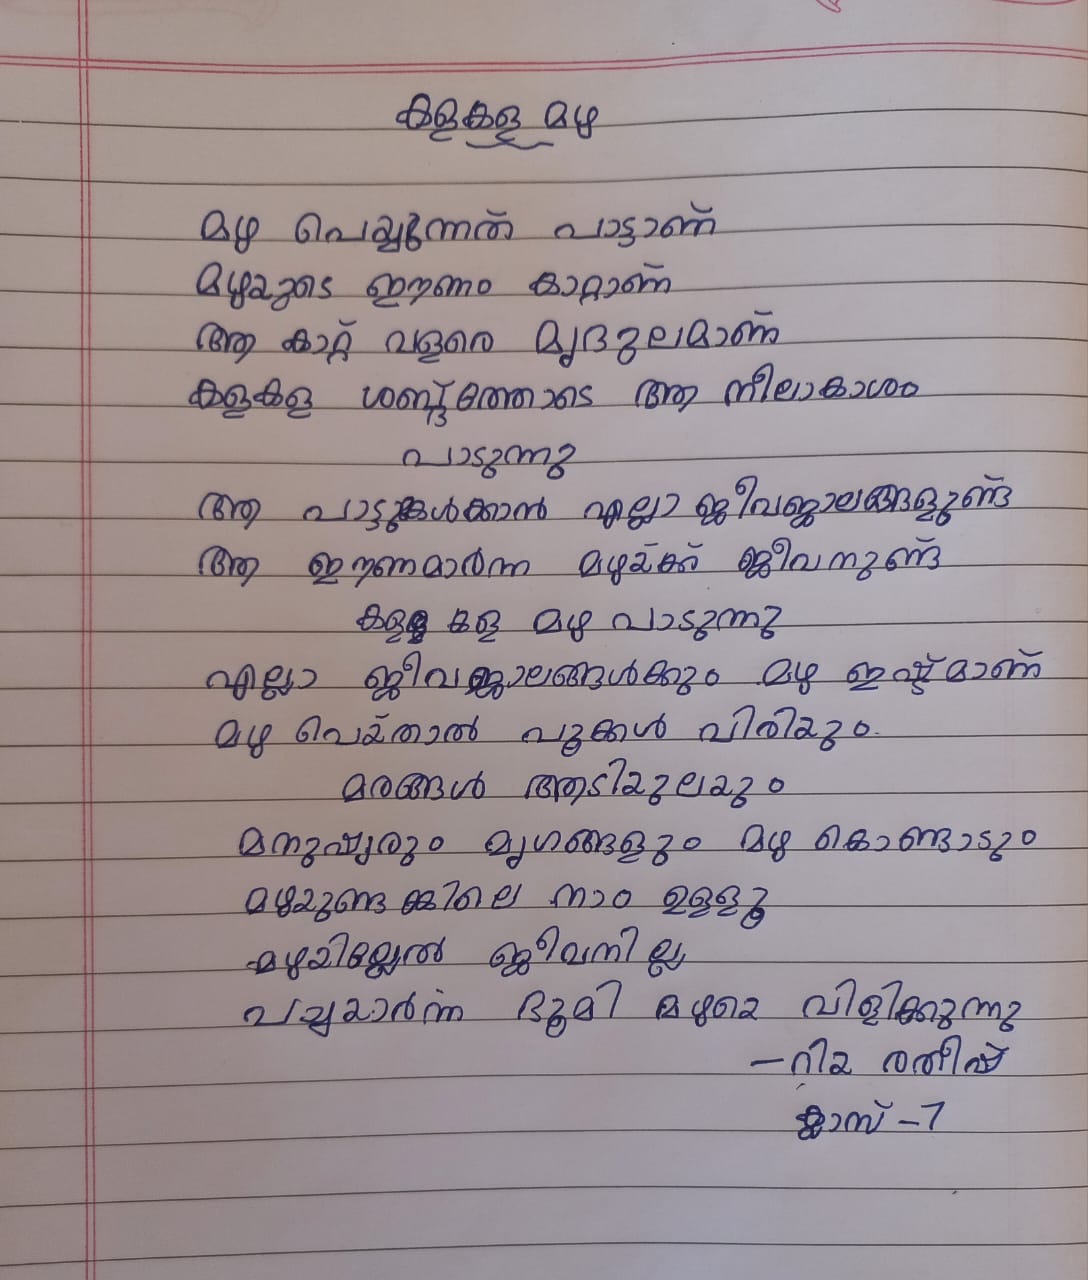 കളകള മഴ
മഴ പെയ്യുന്നത് പാട്ടാണ്
മഴയുടെ ഈണം കാറ്റാണ്
ആ കാറ്റ് വളരെ മൃദുലമാണ്
കളകള ശബ്ദത്തോടെ ആ നീലാകാശം
പാടുന്നു
ആ പാട്ടുകേൾക്കാൻ എല്ലാ ജീവജാലങ്ങളുമുണ്ട്
ആ ഈണമാർന്ന മഴയ്ക്ക് ജീവനുണ്ട്
കള കള മഴ പാടുന്നു
എല്ലാ ജീവജാലങ്ങൾക്കും മഴ ഇഷ്ടമാണ്
മഴ പെയ്താൽ പൂക്കൾ വിരിയും.
മരങ്ങൾ ആടിയുലയും
മനുഷ്യരും മൃഗങ്ങളും മഴ കൊണ്ടാടും
മഴയുണ്ടങ്കിലെ നാം ഉള്ളൂ
മഴയില്ലേൽ ജീവനില്ല
പച്ചയാർന്ന ഭൂമി മഴയെ വിളിക്കുന്നു
- റിയ രതീഷ്
ക്ലാസ് - 7